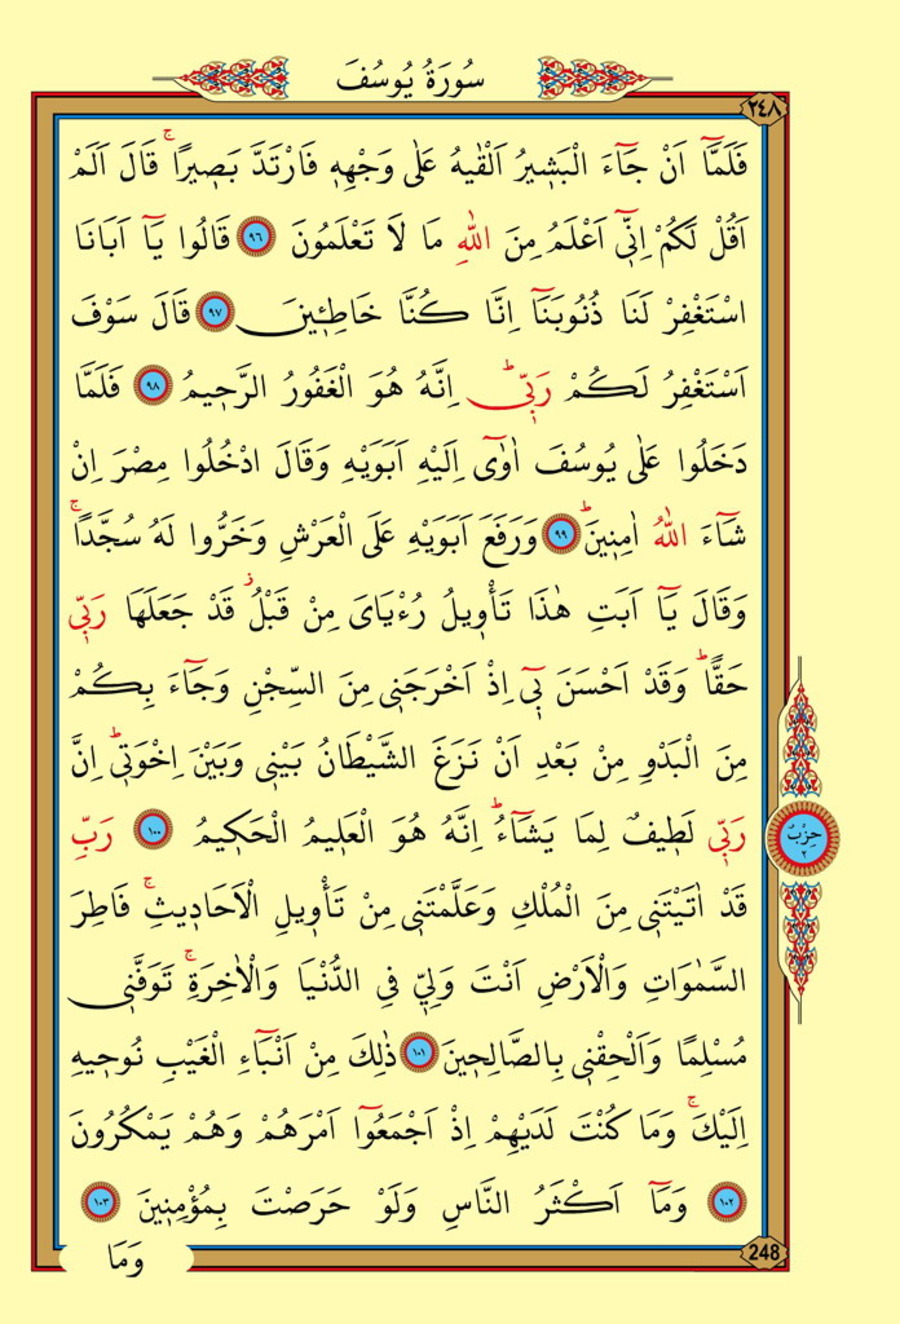 سُورَةُ يُوسُفَ
٢٤٨
فَلَمَّٓا اَنْ جَٓاءَ الْبَش۪يرُ اَلْقٰيهُ عَلٰى وَجْهِه۪ فَارْتَدَّ بَص۪يرًاۚ قَالَ اَلَمْ
اَقُلْ لَكُمْ اِنّ۪ٓي اَعْلَمُ مِنَ اللّٰهِ مَا لَا تَعْلَمُونَ ﴿٩٦﴾ قَالُوا يَٓا اَبَانَا
اسْتَغْفِرْ لَنَا ذُنُوبَنَٓا اِنَّا كُنَّا خَاطِـ۪ٔينَ ﴿٩٧﴾ قَالَ سَوْفَ
اَسْتَغْفِرُ لَكُمْ رَبّ۪يۜ اِنَّهُ هُوَ الْغَفُورُ الرَّح۪يمُ ﴿٩٨﴾ فَلَمَّا
دَخَلُوا عَلٰى يُوسُفَ اٰوٰٓى اِلَيْهِ اَبَوَيْهِ وَقَالَ ادْخُلُوا مِصْرَ اِنْ
شَٓاءَ اللّٰهُ اٰمِن۪ينَۜ ﴿٩٩﴾ وَرَفَعَ اَبَوَيْهِ عَلَى الْعَرْشِ وَخَرُّوا لَهُ سُجَّدًاۚ
وَقَالَ يَٓا اَبَتِ هٰذَا تَأْو۪يلُ رُءْيَايَ مِنْ قَبْلُۘ قَدْ جَعَلَهَا رَبّ۪ي
حَقًّاۜ وَقَدْ اَحْسَنَ ب۪ٓي اِذْ اَخْرَجَن۪ي مِنَ السِّجْنِ وَجَٓاءَ بِكُمْ
مِنَ الْبَدْوِ مِنْ بَعْدِ اَنْ نَزَغَ الشَّيْطَانُ بَيْن۪ي وَبَيْنَ اِخْوَت۪يۜ اِنَّ
رَبّ۪ي لَط۪يفٌ لِمَا يَشَٓاءُۜ اِنَّهُ هُوَ الْعَل۪يمُ الْحَك۪يمُ ﴿١٠٠﴾ رَبِّ
قَدْ اٰتَيْتَن۪ي مِنَ الْمُلْكِ وَعَلَّمْتَن۪ي مِنْ تَأْو۪يلِ الْاَحَاد۪يثِۚ فَاطِرَ
السَّمٰوَاتِ وَالْاَرْضِ اَنْتَ وَلِيّ۪ فِي الدُّنْيَا وَالْاٰخِرَةِۚ تَوَفَّن۪ي
مُسْلِمًا وَاَلْحِقْن۪ي بِالصَّالِح۪ينَ ﴿١٠١﴾ ذٰلِكَ مِنْ اَنْبَٓاءِ الْغَيْبِ نُوح۪يهِ
اِلَيْكَۚ وَمَا كُنْتَ لَدَيْهِمْ اِذْ اَجْمَعُٓوا اَمْرَهُمْ وَهُمْ يَمْكُرُونَ
﴿١٠٢﴾ وَمَٓا اَكْثَرُ النَّاسِ وَلَوْ حَرَصْتَ بِمُؤْمِن۪ينَ ﴿١٠٣﴾
حِزْبٌ
٢
248
وَمَا